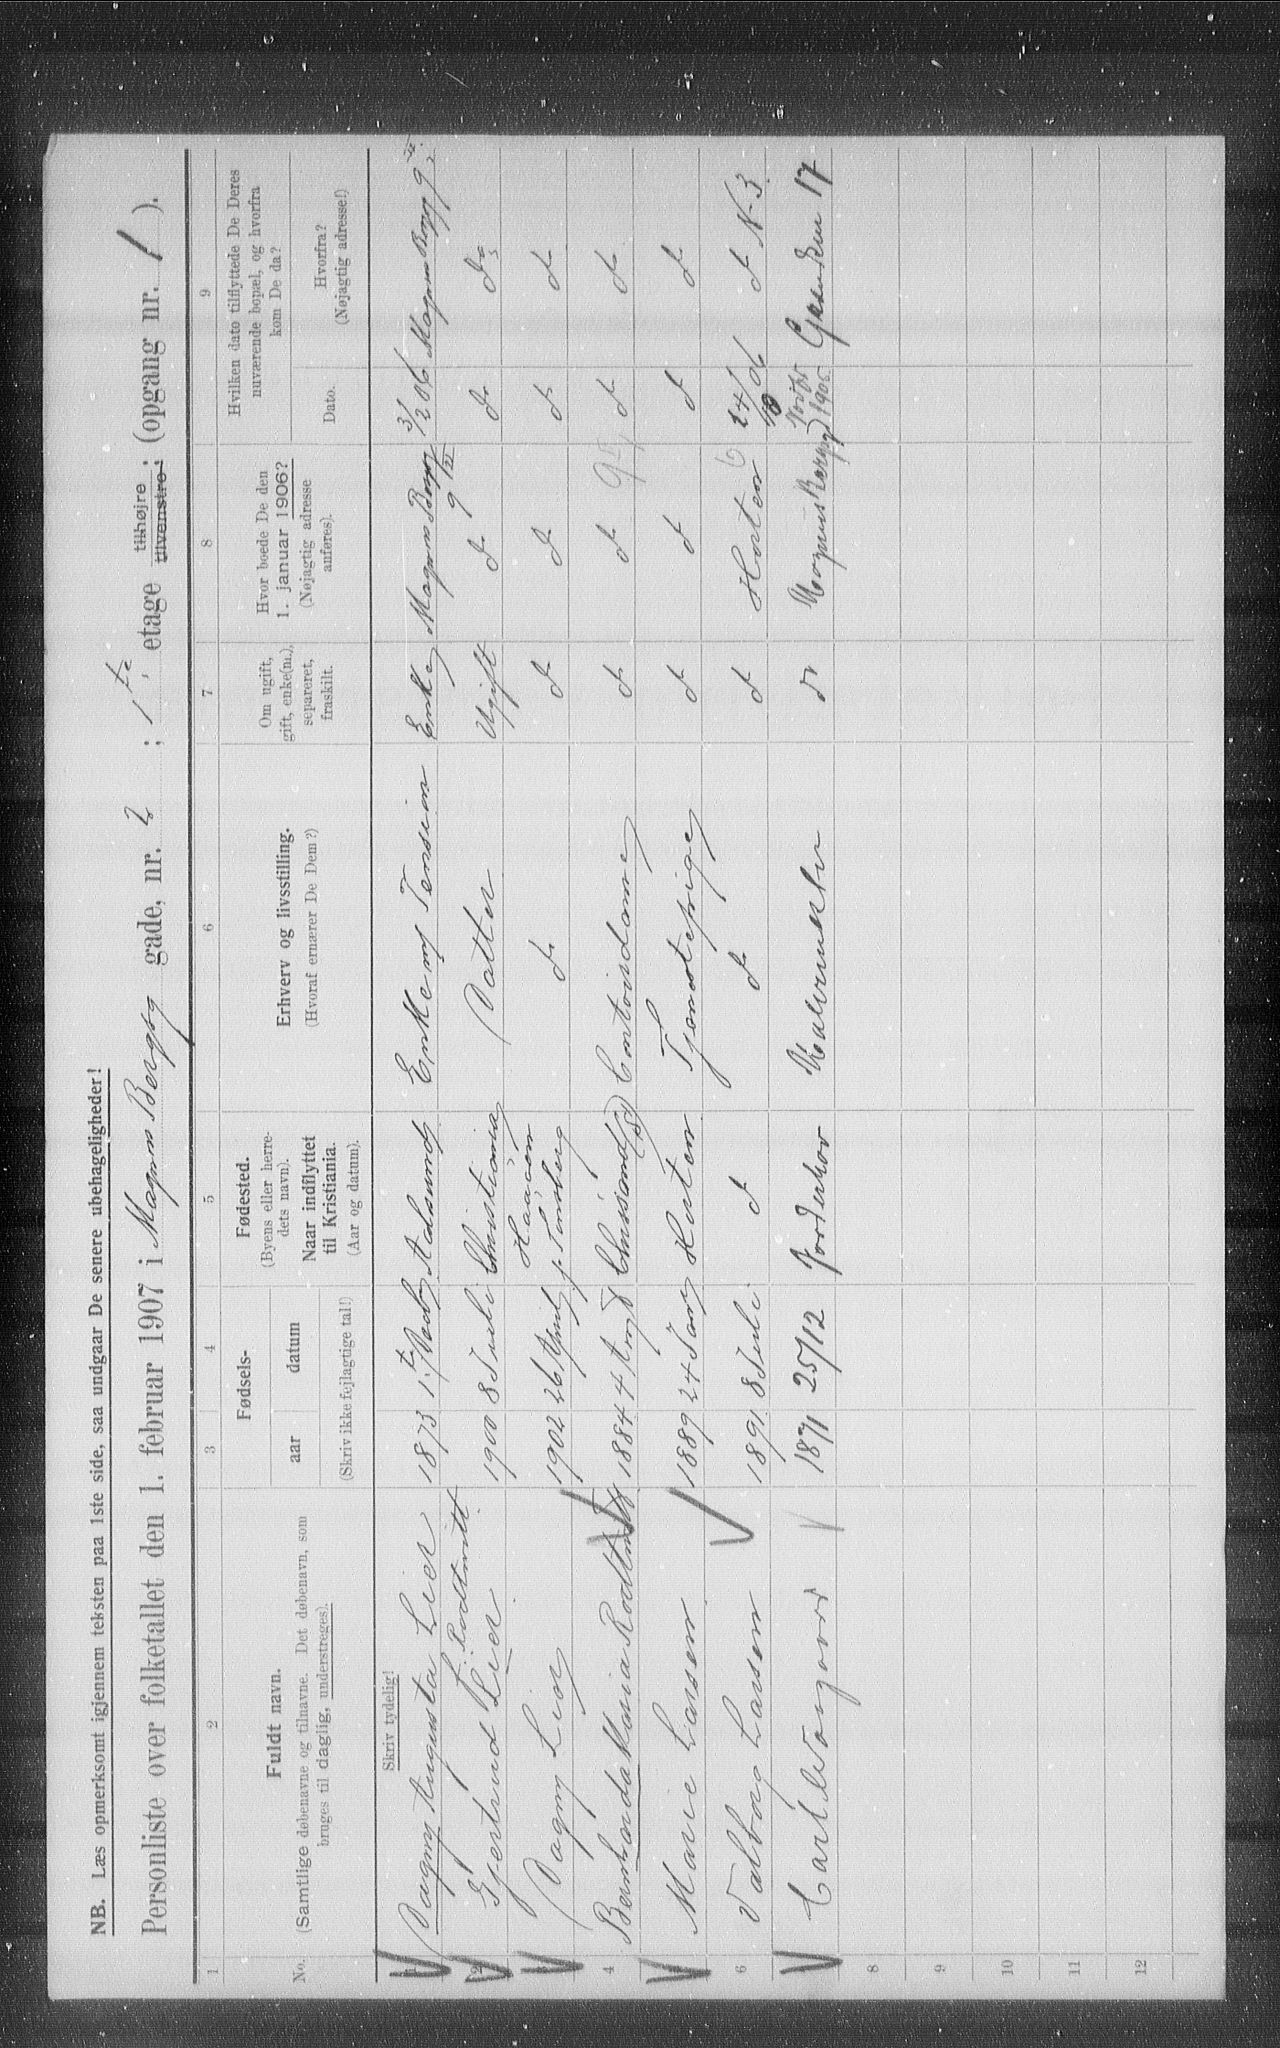 NB. Læs opmerksomt igjennem teksten paa 1ste side, saa undgaar De senere ubehageligheder!
Personliste over folketallet den 1. februar 1907 i Magnus Bergsg gade, nr. 2 ; 1ste etage tilhøjre tilvenstre; (opgang nr. 1 ).
1 2 3 4 5 6 7 8 9
No.
Fuldt navn.
(Samtlige døbenavne og tilnavne. Det døbenavn, som
bruges til daglig, understreges).
Fødsels-
aar datum
(Skriv ikke fejlagtige tal!)
Fødested.
(Byens eller herre-
dets navn).
Naar indflyttet
til Kristiania.
(Aar og datum).
Erhverv og livsstilling.
(Hvoraf ernærer De Dem?)
Om ugift,
gift, enke(m.),
separeret,
fraskilt.
Hvor boede De den
1. januar 1906?
(Nøjagtig adresse
anføres).
Hvilken dato tilflyttede De Deres
nuværende bopæl, og hvorfra
kom De da?
Dato.
Hvorfra?
(Nøjagtig adresse!)
Skriv tydelig!
1 Dagny Augusta Lier f. Rodtwitt 1873 Aalesund Enke m/ Pension Enke Magnus Bergsg 9 3/12 06 Magnus Bergsg 9
2 Gjertrud Lier 1900 8 Juli Christiania Datter Ugift d d d
3 Dagny Lier 1902 26 April p. Tønsberg d d d d d
4 Bernharda Maria Rodtwitt 1884 4 Aug Christiansand Contordame d d d d
5 Marie Larsen 1889 24 Horten Tjenestepige d d d d
6 Valborg Larsen 1891 8 Juli d d d Horten 24/10 06 d N 3
Carl 1871 25/12 Norderhov d Magnus Bergsgd 1905 17
8
9
10
11
12